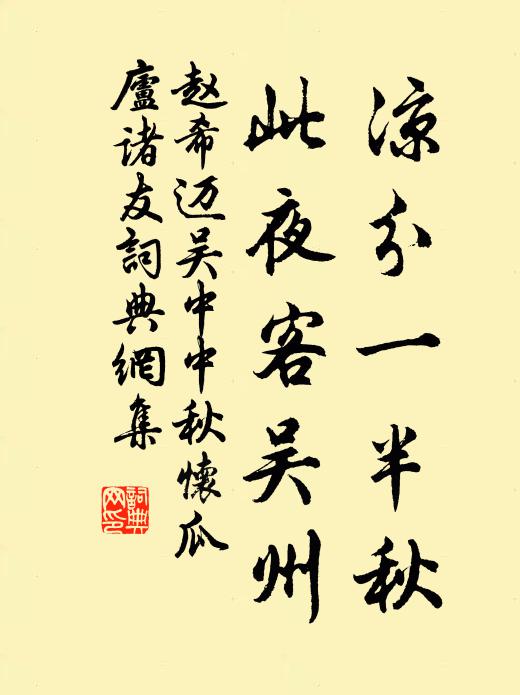 凉分一半秋
此夜客吴州
赵希迈吴中中秋怀瓜
廬诸友詞典網集
詞典
网印